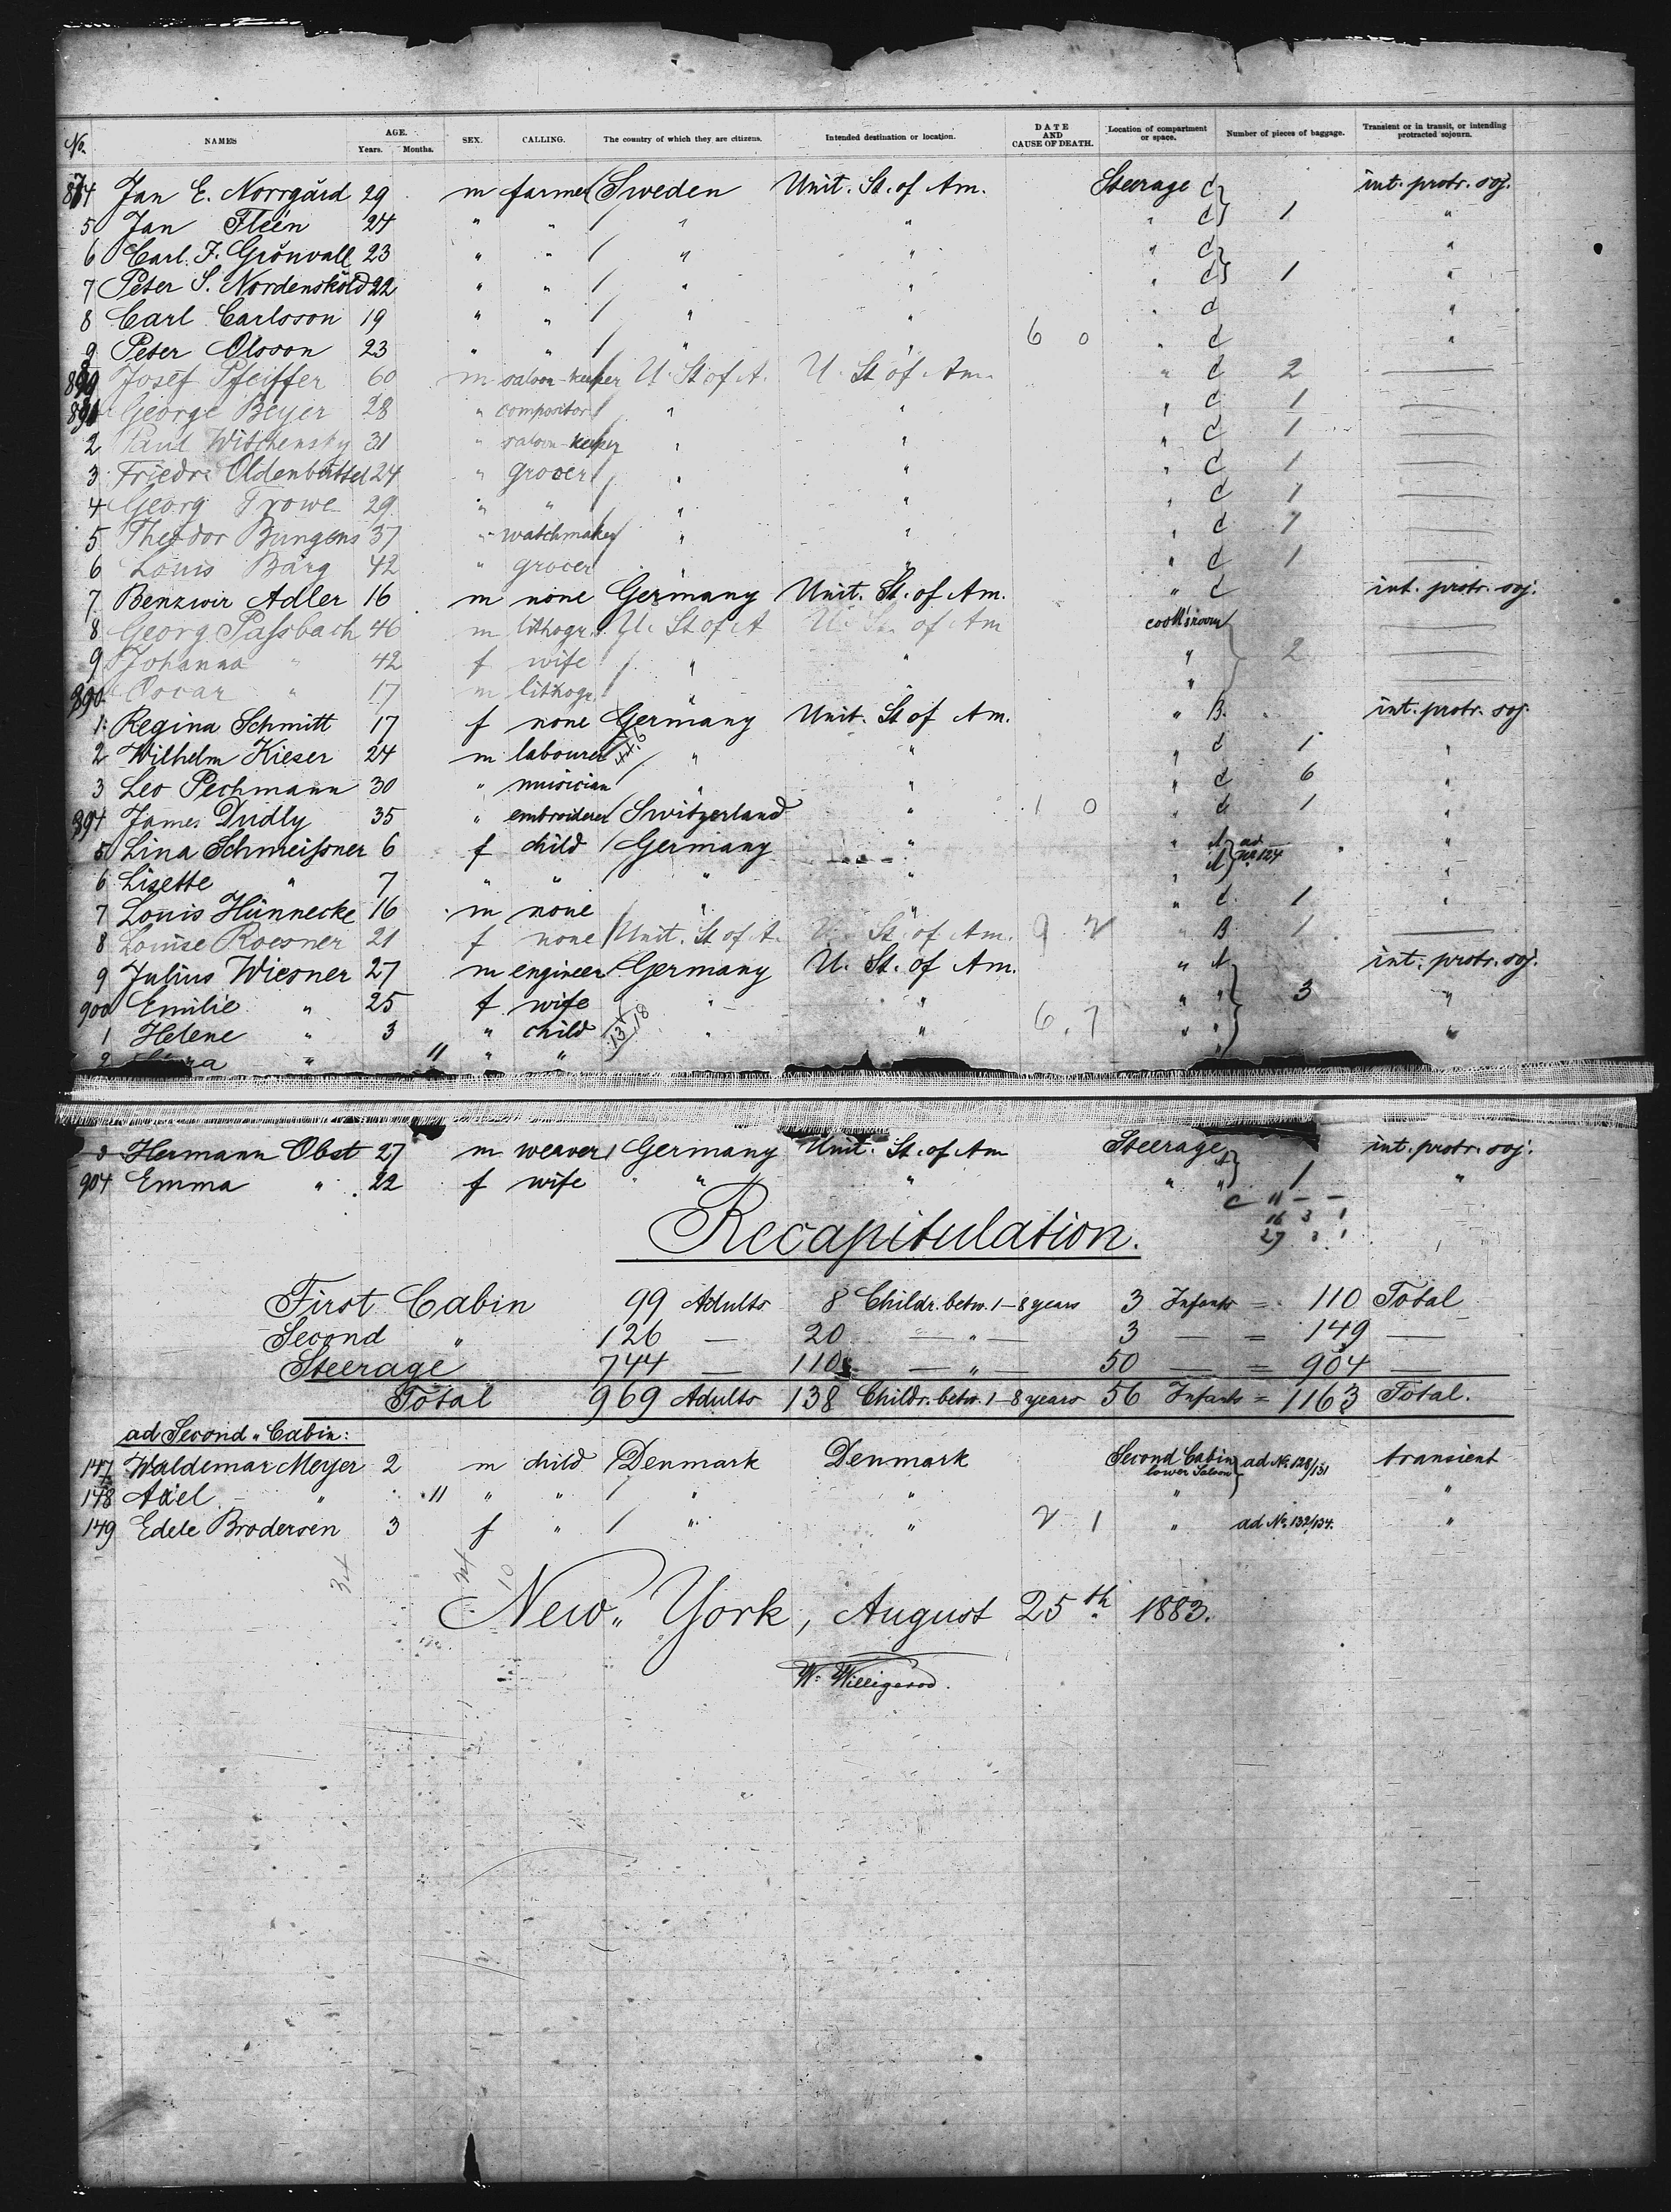 No. NAMES AGE. Years. Months. SEX. CALLING. The country of which they are citizens. Intended destination or location. DATE AND CAUSE OF DEATH. Location of compartment or space. Number of pieces of baggage. Transient or in transit, or intending protracted sojourn.
874 Jan E. Norrgård 29 m farmer Sweden Unit. St. of Am. Steerage C int. protr. soj.
5 Jan Fléen 24 " " " " " C } 1 "
6 Carl F. Grönvall 23 " " " " " C "
7 Peter S. Nordensköld 22 " " " " " C } 1 "
8 Carl Carlsson 19 " " " " " C "
9 Peter Olsson 23 " " " " 6 0 " C "
Josef Pfeiffer 60 m saloon-keeper U. St of A. U. St of Am. " C 2 —
George Beyer 28 " compositor " " " C 1 —
2 Paul Witschensky 31 " saloon-keeper " " " C 1 —
3 Friedr. Oldenbüttel 24 " grocer " " " C 1 —
4 Georg Trowe 29 " " " " " C 1 —
5 Theodor Bungens 37 " watchmaker " " " C 1 —
6 Louis Barg 42 " grocer " " " C 1 —
7 Benzwir Adler 16 m none Germany Unit. St. of Am. " C int. protr. soj.
8 Georg Passbach 46 m lithogr. U. St of A U. St. of Am cook's room —
9 Johanna " 42 f wife " " " } 2 —
890 Oscar " 17 m lithogr. " " " —
1 Regina Schmitt 17 f none Germany Unit. St of Am. " B. int. protr. soj.
2 Wilhelm Kieser 24 m labourer " " " C 1 "
3 Leo Pechmann 30 " musician " " " C 6 "
894 James Dudly 35 " embroiderer Switzerland " 1 0 " C 1 "
5 Lina Schmeissner 6 f child Germany " " A } ad No 124 "
6 Lisette " 7 " " " " " A "
7 Louis Hünnecke 16 m none " " " C 1 "
8 Louise Roesner 21 f none Unit. St of A. U. St. of Am. 9 2 " B 1 —
9 Julius Wiesner 27 m engineer Germany U. St. of Am. " A int. protr. soj.
900 Emilie " 25 f wife " " " " } 3 "
1 Helene " 3 " child 13,18 " " 6.7 " " "
2 " 11 " "
3 Hermann Obst 27 m weaver Germany Unit. St. of Am Steerage A int. protr. soj.
904 Emma " 22 f wife " " " " } 1 "
C 11 – –
16 3 1
27 3 1
Recapitulation.
First Cabin 99 Adults 8 Childr. betw. 1–8 years 3 Infants = 110 Total
Second " 126 — 20 — " — 3 — = 149 —
Steerage 744 — 110 — " — 50 — = 904 —
Total 969 Adults 138 Childr. betw. 1–8 years 56 Infants = 1163 Total.
ad Second " Cabin:
147 Waldemar Meyer 2 m child Denmark Denmark Second Cabin lower Saloon } ad No. 129/131 transient
148 Axel " 11 " " " " " "
149 Edele Brodersen 3 f " " " 2 1 " ad No. 132/134. "
New " York, August 25th 1883.
W. Willigerod.